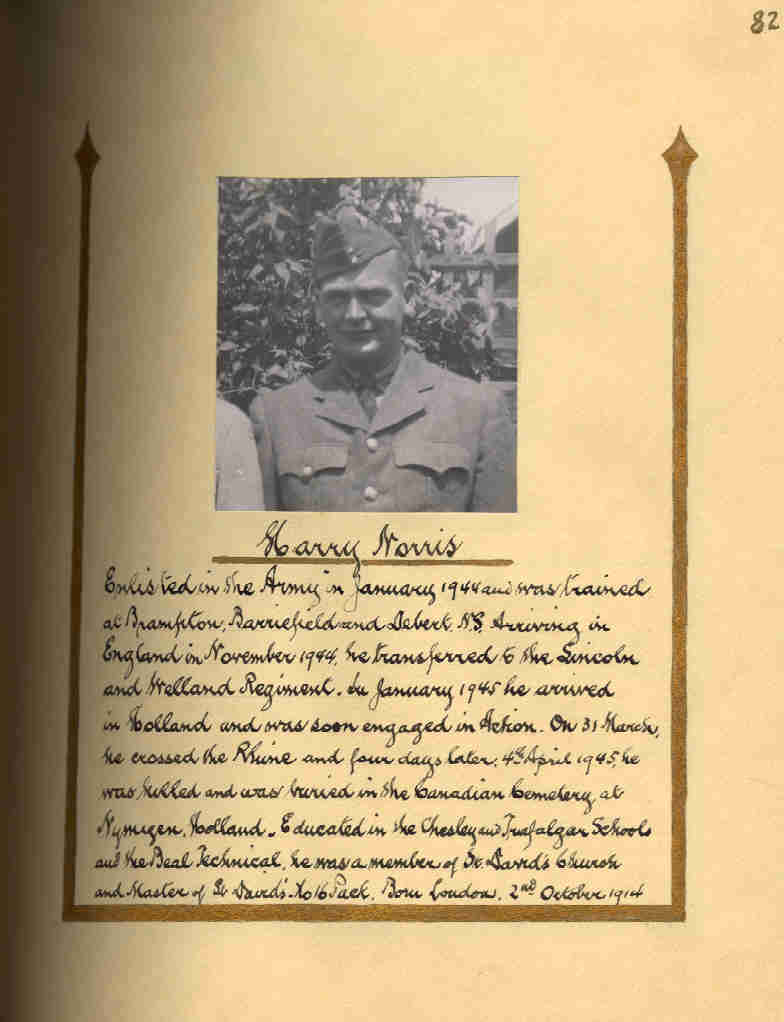 82
Harry Norris
Enlisted in the Army in January 1944 and was trained
at Brampton, Barriefield and Debert, N.S. Arriving in
England in November 1944, he transferred to the Lincoln
and Welland Regiment. In January 1945 he arrived
in Holland and was soon engaged in Action. On 31 March,
he crossed the Rhine and four days later, 4th April 1945, he
was killed and was buried in the Canadian Cemetery at
Nymigen, Holland. Educated in the Chesley and Trafalgar Schools
and the Beal Technical, he was a member of St. David's Church
and Master of St David's No 16 Pack. Born London, 2nd October 1914